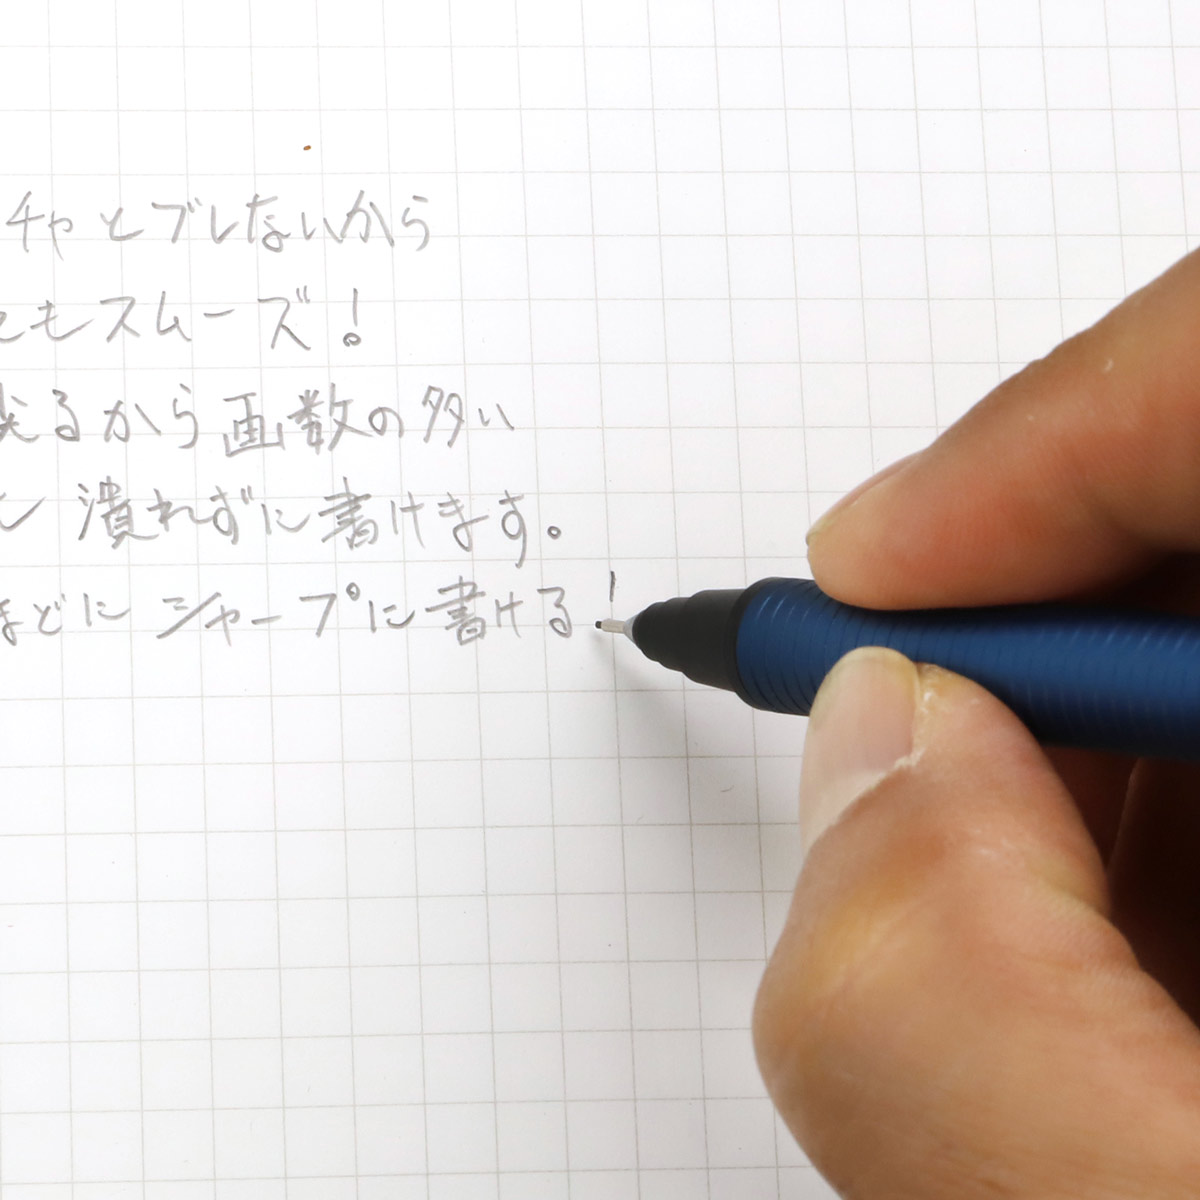 チャとブレないから
てもスムーズ!
尖るから画数の多い
潰れずに書けます。
ほどにシャープに書ける!